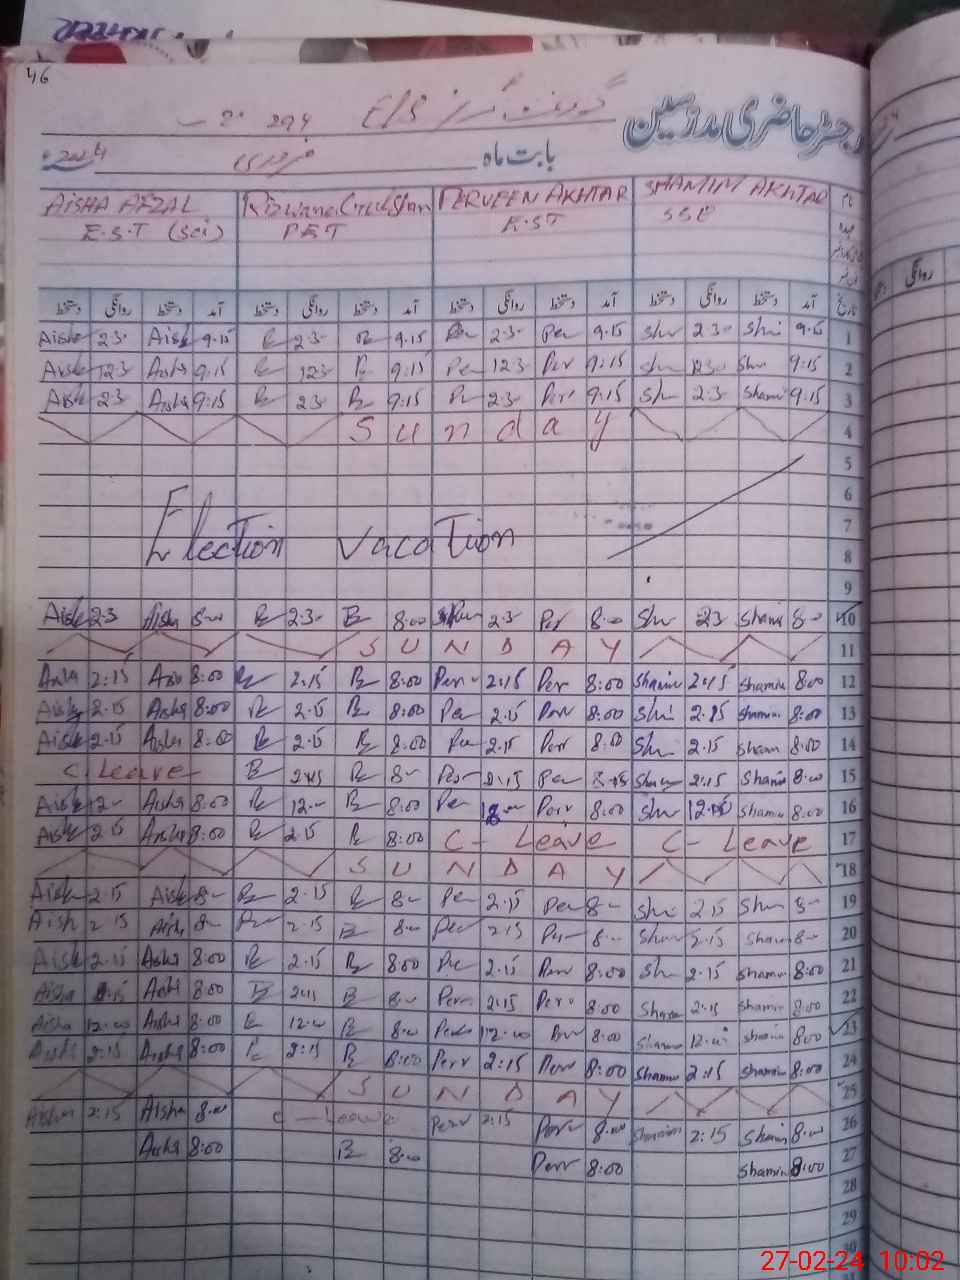 46
رجسٹر حاضری مدرسین
بابت ماہ فروری 2024ء
AISHA AFZAL Rizwana Gulshan PERVEEN AKHTAR SHAMIM AKHTAR
E.S.T (Sci) PET E.ST SSE
دستخط روانگی دستخط آمد دستخط روانگی دستخط آمد دستخط روانگی دستخط آمد دستخط روانگی دستخط آمد تاریخ
روانگی
Aish 2.3 Aish 9.15 R 2.3 R 9.15 Per 2.3 Per 9.15 Shi 2.3 Shi 9.15 1
Aish 12.3 Aisha 9:15 R 12.3 R 9:15 Per 12.3 Per 9:15 Sh 12.3 Shi 9:15 2
Aish 2.3 Aisha 9:15 R 2.3 R 9:15 Per 2.3 Per 9:15 Sh 2.3 Shami 9:15 3
Sunday 4
5
6
7
Election vacation
8
9
Aish 2.3 Aisha 8.00 R 2.3 R 8.00 Per 2.3 Per 8.00 Shi 2.3 Shami 8.00 10
SUNDAY 11
Aisha 2:15 Aisha 8:00 R 2.15 R 8:00 Per 2:15 Per 8:00 Shamim 2:15 Shamim 8:00 12
Aisha 2.15 Aisha 8:00 R 2.15 R 8:00 Per 2.15 Perr 8:00 Shi 2.15 Shamim 8:00 13
Aish 2.15 Aisha 8:00 R 2.15 R 8:00 Per 2.15 Perr 8:00 Shi 2.15 Sham 8:00 14
C. Leave R 2:15 R 8 Per 2:15 Per Sham 2:15 Shami 8:00 15
Aish 12 Aisha 8:00 R 12.00 R 8:00 Per Perr 8:00 Shi 12.00 Shamim 8:00 16
Aish 2.15 Aisha 8:00 R 2.15 R 8:00 C- Leave C- Leave 17
SUNDAY 18
Aish 2.15 Aish 8 R 2.15 R 8 Per 2.15 Per 8 Shi 2.15 Shi 8 19
Aish 2.15 Aish 8 R 2.15 R 8 Per 2.15 Per 8 Shi 2.15 Sham 8 20
Aish 2.15 Aisha 8:00 R 2.15 R 8:00 Per 2.15 Perr 8:00 Sh 2.15 Shamim 8:00 21
Aisha 2.15 Aish 8:00 R 2:15 R 8 Per 2:15 Per 8:00 Sham 2:15 Shami 8:00 22
Aisha 12.00 Aisha 8:00 R 12.00 R 8.00 Per 12.00 Per 8:00 Shamim 12.00 Shami 8:00 23
Aisha 2:15 Aisha 8:00 R 2:15 R 8:00 Perr 2:15 Perr 8:00 Shami 2:15 Shami 8:00 24
SUNDAY 25
Aisha 2:15 Aisha 8.00 C-Leave Perr 2:15 Perr 8.00 Shamim 2:15 Shami 8.00 26
Aisha 8:00 R 8.00 Perr 8:00 Shamim 8:00 27
28
29
30
27-02-24 10:02